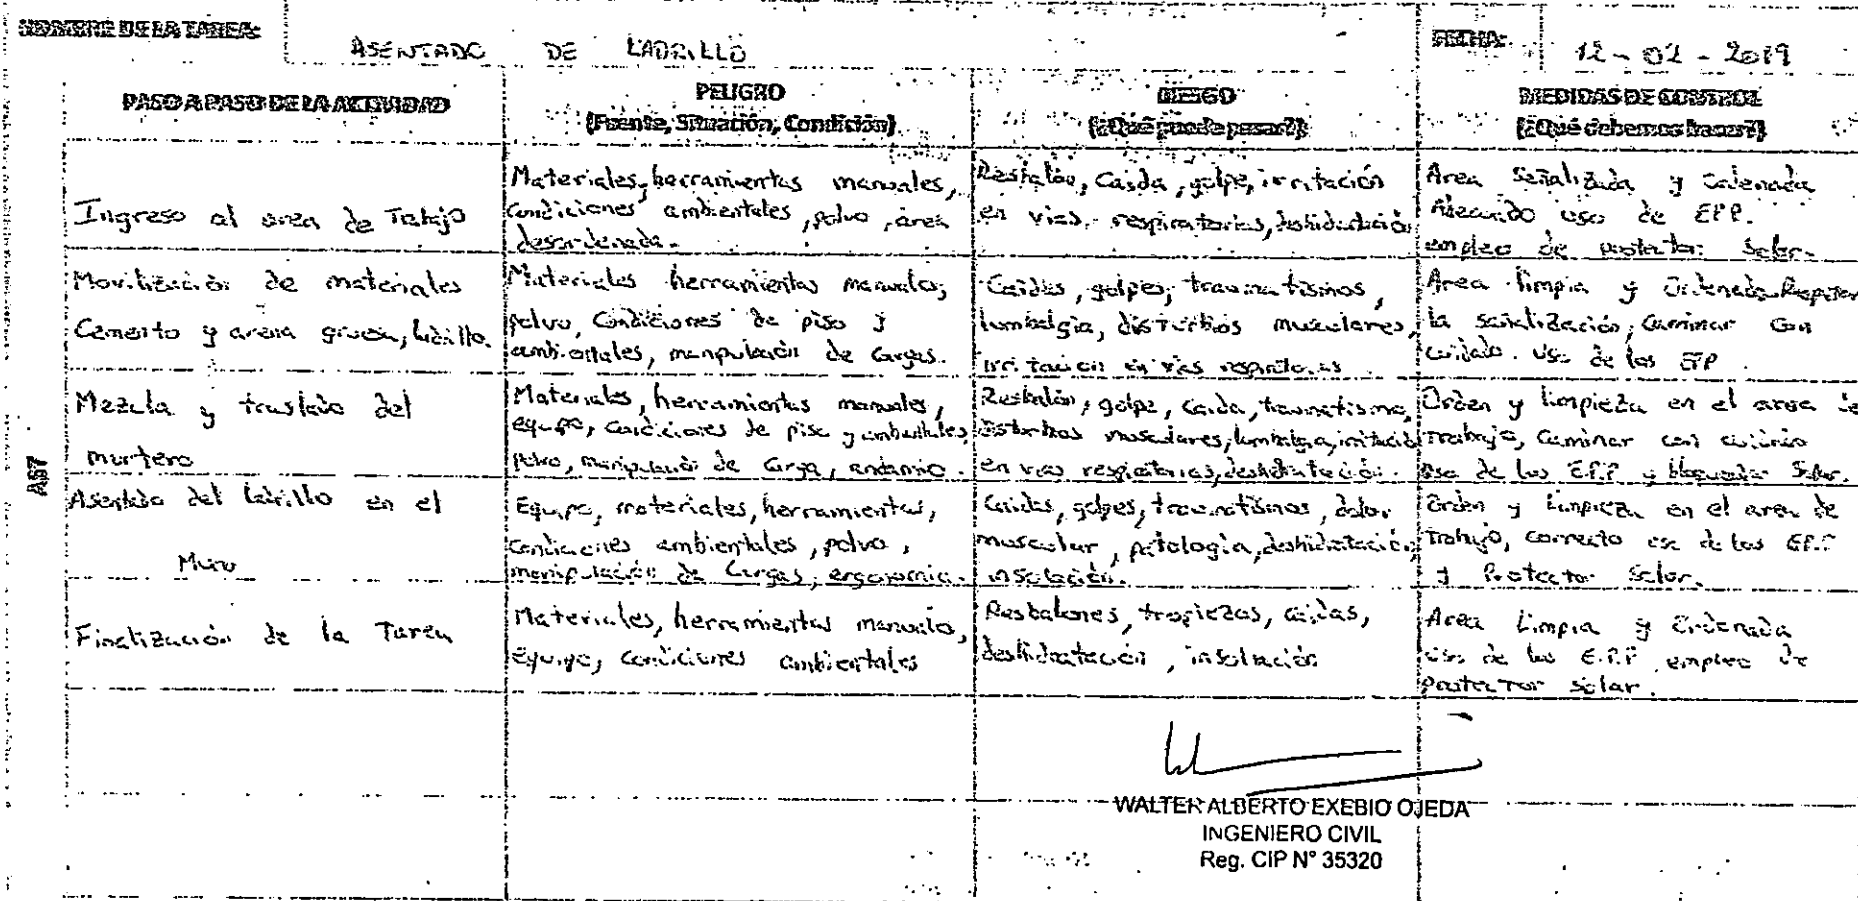 NOMBRE DE LA TAREA:
ASENTADO DE LADRILLO
FECHA:
12 - 02 - 2019
PASO A PASO DE LA ACTIVIDAD
PELIGRO
(Fuente, Situación, Condición)
RIESGO
(¿Qué puede pasar?)
MEDIDAS DE CONTROL
(¿Qué debemos hacer?)
Ingreso al area de Tabajo
Materiales, herramientas manuales,
Condiciones ambientales, polvo, área
desordenada.
Resbalón, Caída, golpe, irritación
en vias respiratorias, deshidratación
Area Señalizada y Ordenada
Adecuado uso de EPP.
empleo de protector Solar.
Movilización de materiales
Cemento y arena gruesa, ladrillo.
Materiales herramientas manuales,
polvo, Condiciones de piso y
ambientales, manipulación de Cargas.
Caidas, golpes, traumatismos,
lumbalgia, disturbios musculares,
irritación en vias respiratorias
Area limpia y Ordenada Respetar
la señalización, Caminar con
cuidado. Uso de los EPP.
Mezcla y traslado del
murtero
Materiales, herramientas manuales,
equipo, condiciones de piso y ambientales,
polvo, manipulación de Carga, andamio.
Resbalón, golpe, caida, traumatismo,
disturbios musculares, lumbalgia, irritación
en vias respiratorias, deshidratación.
Orden y limpieza en el area de
trabajo, Caminar con cuidado
uso de los E.P.P y bloqueador Solar.
Asentado del ladrillo en el
Muro
Equipo, materiales, herramientas,
Condiciones ambientales, polvo,
manipulación de Cargas, ergonomia.
Caidas, golpes, traumatismos, dolor
muscular, patologia, deshidratación,
insolación.
Orden y Limpieza en el area de
Trabajo, correcto uso de los E.P.P
y Protector Solar.
Finalización de la Tarea
Materiales, herramientas manuales,
Equipo, Condiciones ambientales
Resbalones, tropiezos, caidas,
deshidratación, insolación
Area Limpia y Ordenada
uso de los E.P.P. empleo de
protector solar.
WALTER ALBERTO EXEBIO OJEDA
INGENIERO CIVIL
Reg. CIP N° 35320